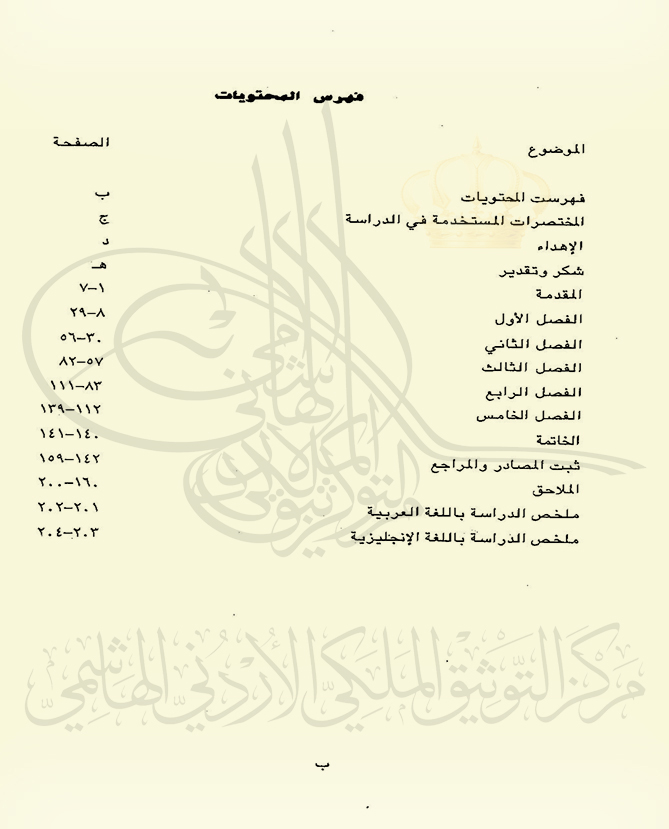 فهرس المحتويات
الموضوع الصفحة
فهرست المحتويات ب
المختصرات المستخدمة في الدراسة ج
الإهداء د
شكر وتقدير هـ
المقدمة ١–٧
الفصل الأول ٨–٢٩
الفصل الثاني ٣٠–٥٦
الفصل الثالث ٥٧–٨٢
الفصل الرابع ٨٣–١١١
الفصل الخامس ١١٢–١٣٩
الخاتمة ١٤٠–١٤١
ثبت المصادر والمراجع ١٤٢–١٥٩
الملاحق ١٦٠–٢٠٠
ملخص الدراسة باللغة العربية ٢٠١–٢٠٢
ملخص الدراسة باللغة الإنجليزية ٢٠٣–٢٠٤
مركز التوثيق الملكي الأردني الهاشمي
ب